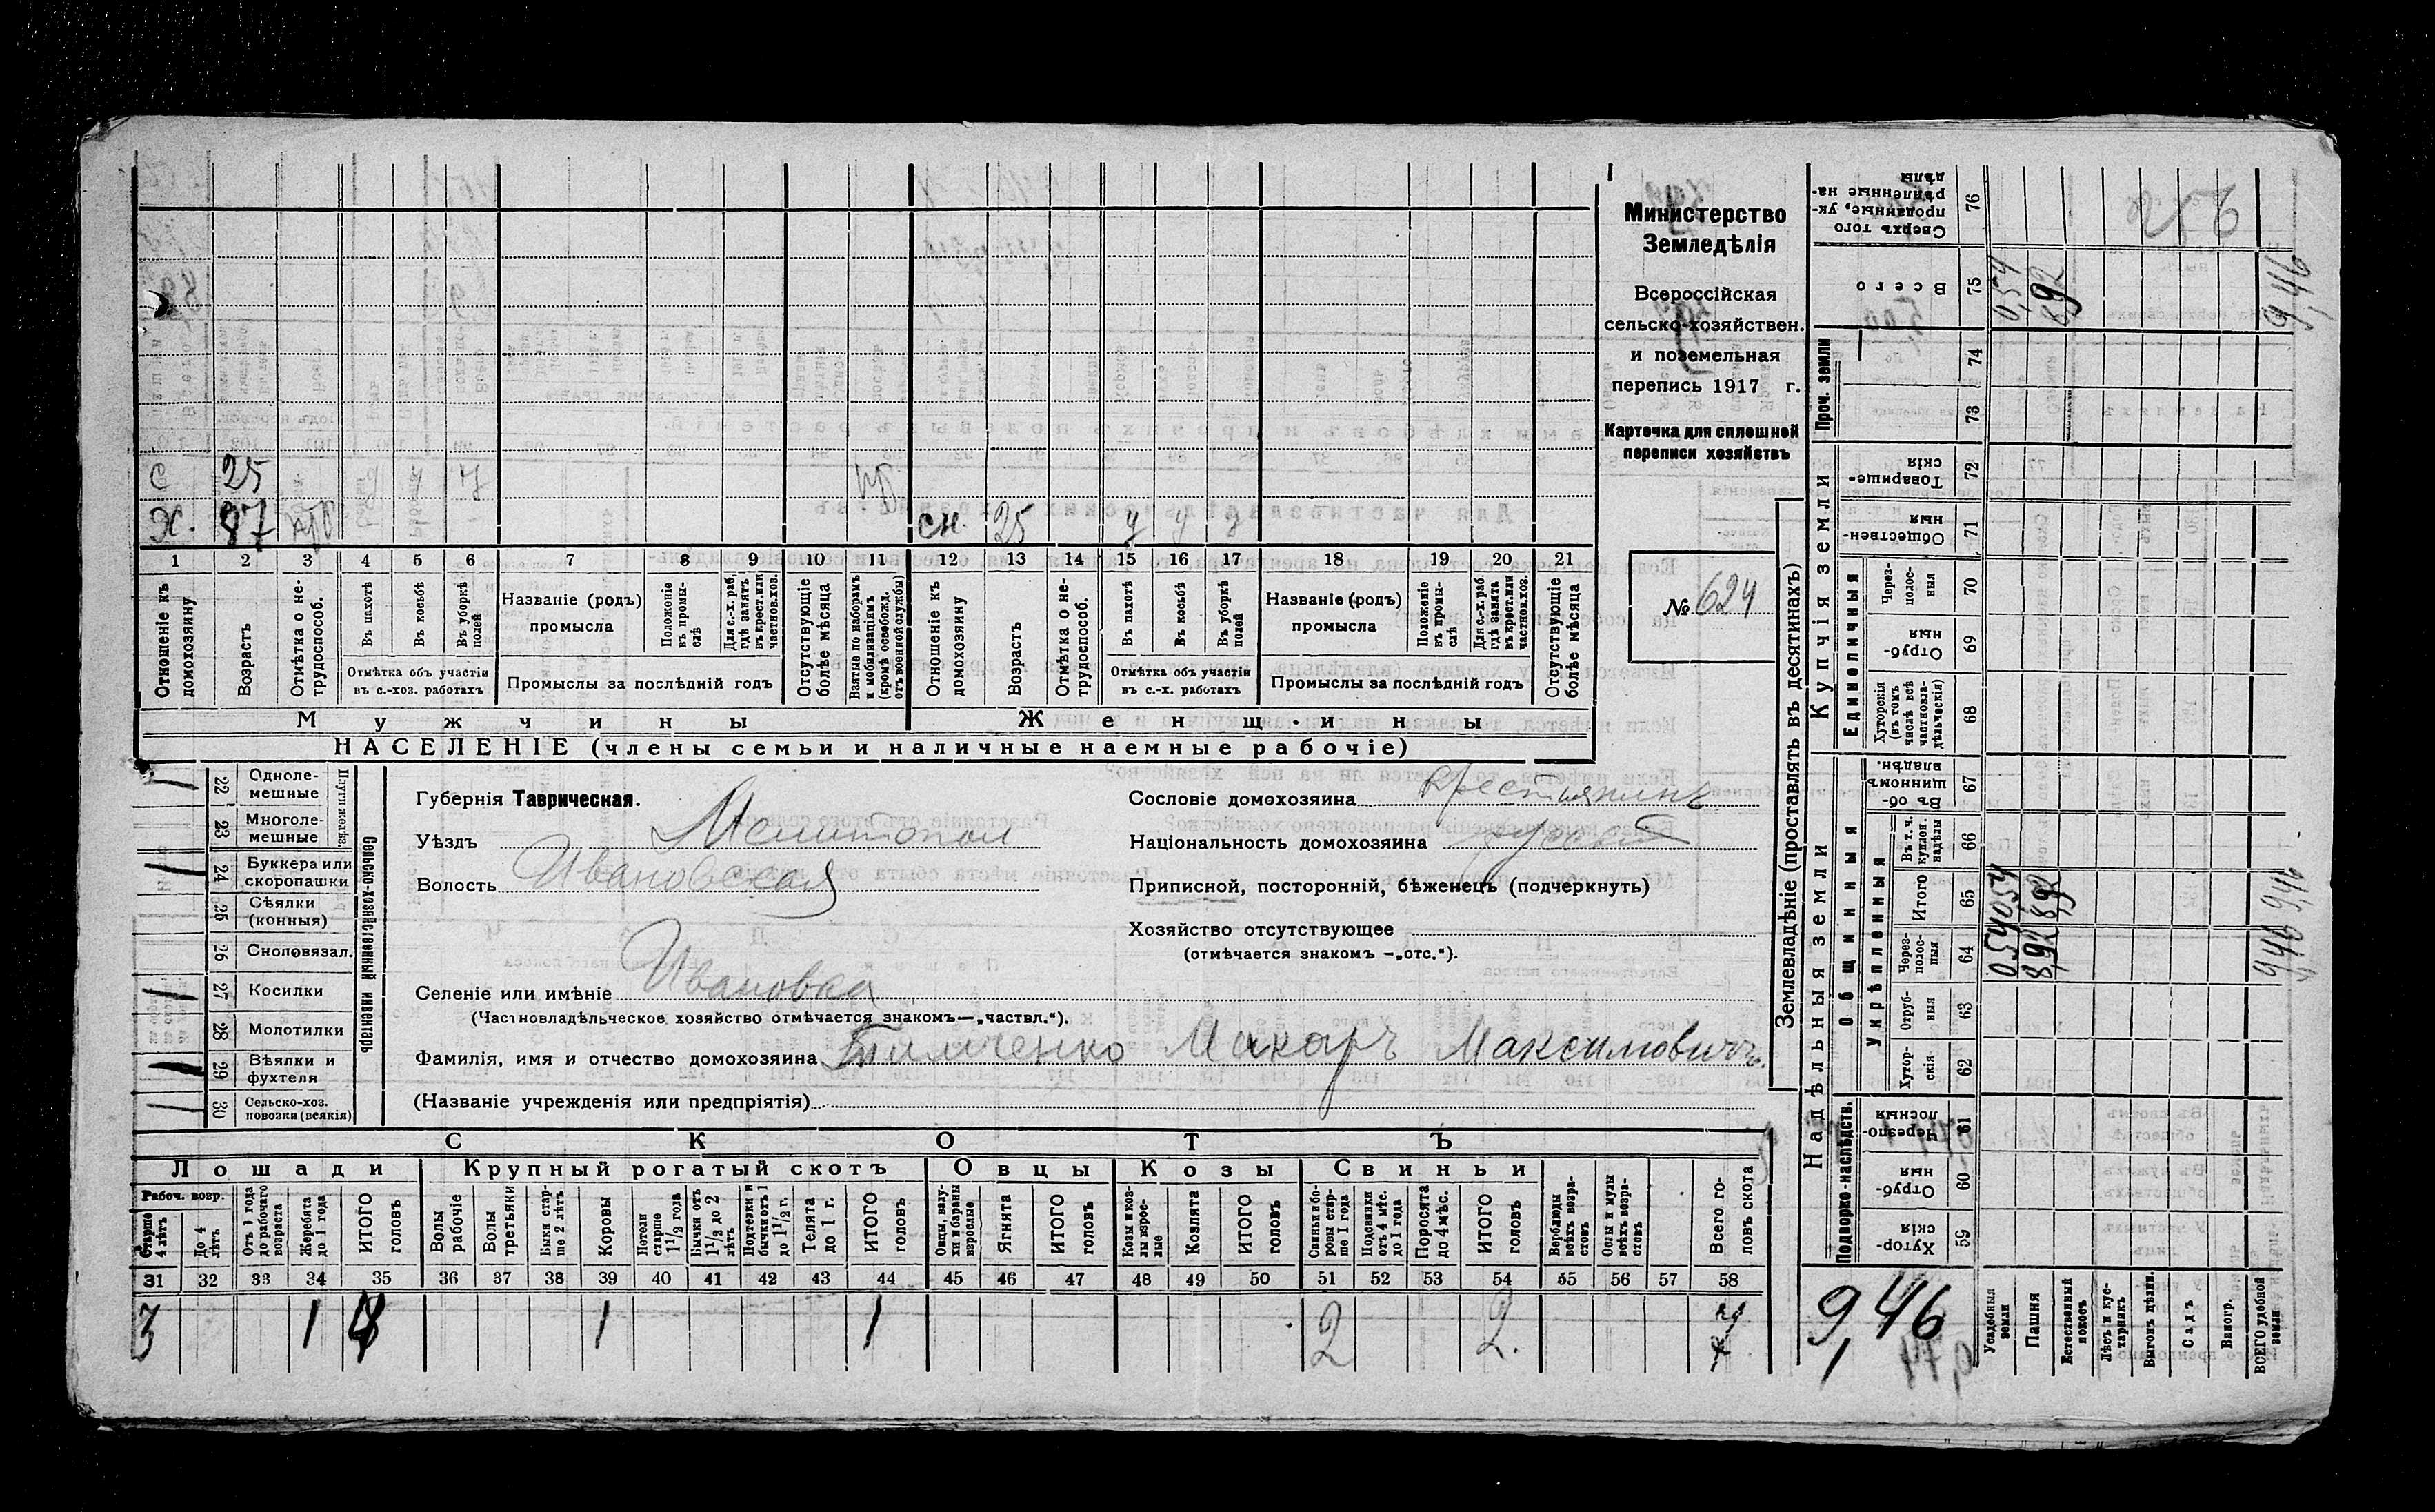 Министерство
Земледѣлія
Всероссійская
сельско-хозяйствен.
и поземельная
перепись 1917 г.
Карточка для сплошной
переписи хозяйствъ
№ 624
С 25
Х. 87
сн. 25 у у у
1 2 3 4 5 6 7 8 9 10 11 12 13 14 15 16 17 18 19 20 21
Отношеніе къ домохозяину
Возрастъ
Отмѣтка о нетрудоспособ.
Въ пахотѣ
Въ косьбѣ
Въ уборкѣ полей
Отмѣтка объ участіи
въ с.-хоз. работахъ
Названіе (родъ)
промысла
Положеніе въ промыслѣ
Для с.-х. раб, гдѣ занятъ въ крест. или частнов. хоз.
Промыслы за послѣдній годъ
Отсутствующіе болѣе мѣсяца
Взятые по наборамъ и мобилизаціямъ (кромѣ освобожд. отъ военной службы)
Отношеніе къ домохозяину
Возрастъ
Отмѣтка о нетрудоспособ.
Въ пахотѣ
Въ косьбѣ
Въ уборкѣ полей
Отмѣтка объ участіи
въ с.-х. работахъ
Названіе (родъ)
промысла
Положеніе въ промыслѣ
Для с.-х. раб. гдѣ занята въ крест. или частнов. хоз.
Промыслы за послѣдній годъ
Отсутствующіе болѣе мѣсяца
Мужчины Женщины
НАСЕЛЕНІЕ (члены семьи и наличные наемные рабочіе)
Сельско-хозяйственный инвентарь
Плуги желѣз.
22 Однолемешные
23 Многолемешные
24 Буккера или скоропашки
25 Сѣялки (конныя)
26 Сноповязал.
27 Косилки
28 Молотилки
29 Вѣялки и фухтеля
30 Сельско-хоз. повозки (всякія)
Губернія Таврическая.
Уѣздъ Мелитопол
Волость Ивановская
Сословіе домохозяина Крестьянинъ
Національность домохозяина русск
Приписной, посторонній, бѣженецъ (подчеркнуть)
Хозяйство отсутствующее
(отмѣчается знакомъ —„отс.“).
Селеніе или имѣніе Ивановка
(Частновладѣльческое хозяйство отмѣчается знакомъ—„частвл.“).
Фамилія, имя и отчество домохозяина Тимченко Макаръ Максимовичъ
(Названіе учрежденія или предпріятія)
СКОТЪ
Лошади Крупный рогатый скотъ Овцы Козы Свиньи
Рабоч. возр.
Старше 4 лѣтъ
До 4 лѣтъ
Отъ 1 года до рабочаго возраста
Жеребята до 1 года
ИТОГО головъ
Волы рабочіе
Волы третьяки
Быки старше 2 лѣтъ
Коровы
Нетели старше 1½ года
Бычки отъ 1½ до 2 лѣтъ
Подтелки и бычки отъ 1 до 1½ г.
Телята до 1 г.
ИТОГО головъ
Овцы, валухи и бараны взрослые
Ягнята
ИТОГО головъ
Козы и козлы взрослые
Козлята
ИТОГО головъ
Свиньи и боровы старше 1 года
Подсвинки отъ 4 мѣс. до 1 года
Поросята до 4 мѣс.
ИТОГО головъ
Верблюды всѣхъ возрастовъ
Ослы и мулы всѣхъ возрастовъ
Всего головъ скота
31 32 33 34 35 36 37 38 39 40 41 42 43 44 45 46 47 48 49 50 51 52 53 54 55 56 57 58
3 1 4 1 1 2 2. 7
Землевладѣніе (проставлять въ десятинахъ)
Купчія земли
Надѣльныя земли
Проч. земли
Единоличныя
Общинныя
Укрѣпленныя
Подворно-наслѣдств.
Сверхъ того проданные, укрѣпленные надѣлы 76
Всего 75 0,54 8,92 9,46
74
73
Товарищескія 72
Общественныя 71
Черезполосныя 70
Отрубныя 69
Хуторскія (въ томъ числѣ всѣ частновладѣльческія) 68
Въ общинномъ владѣн. 67
Въ т. ч. куплен. надѣлы 66
Итого 65 0,54 8,92 9,46
Черезполосныя 64 0,54 8,92 9,46
Отрубныя 63
Хуторскія 62
Черезполосныя 61
Отрубныя 60
Хуторскія 59
9,46
Усадебныя земли
Пашня
Естественный покосъ
Лѣсъ и кустарникъ
Выгонъ цѣлин.
Садъ
Виногр.
ВСЕГО удобной земли